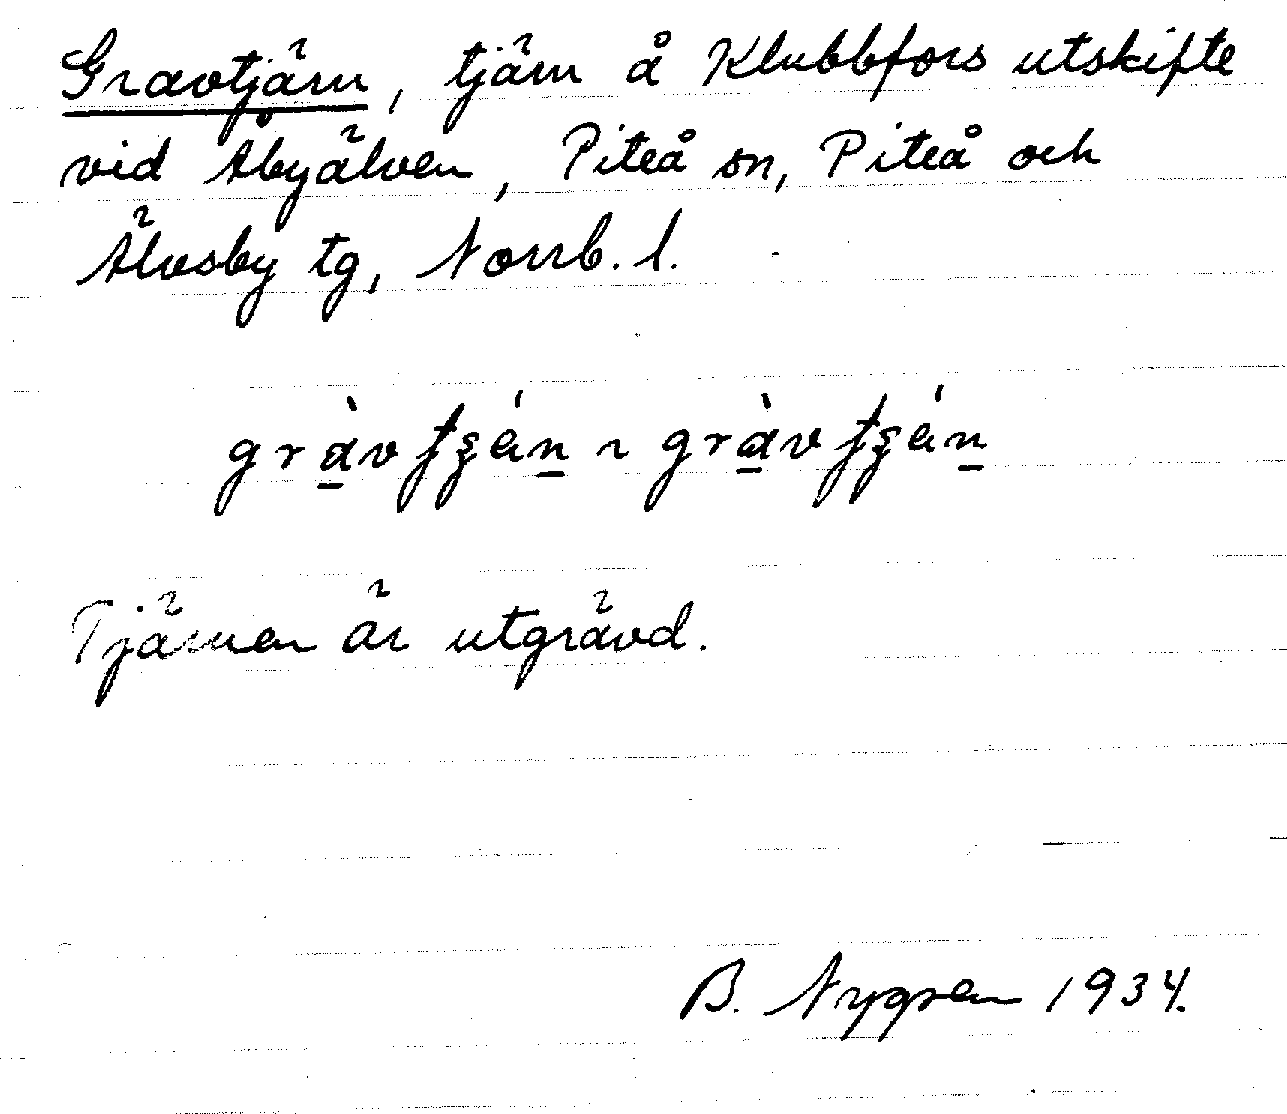 Gravtjärn, tjärn å Klubbfors utskifte
vid Åbyälven, Piteå sn, Piteå och
Älvsby tg, Norrb. l.
Tjärnen är utgrävd.
B. Nygren 1934.